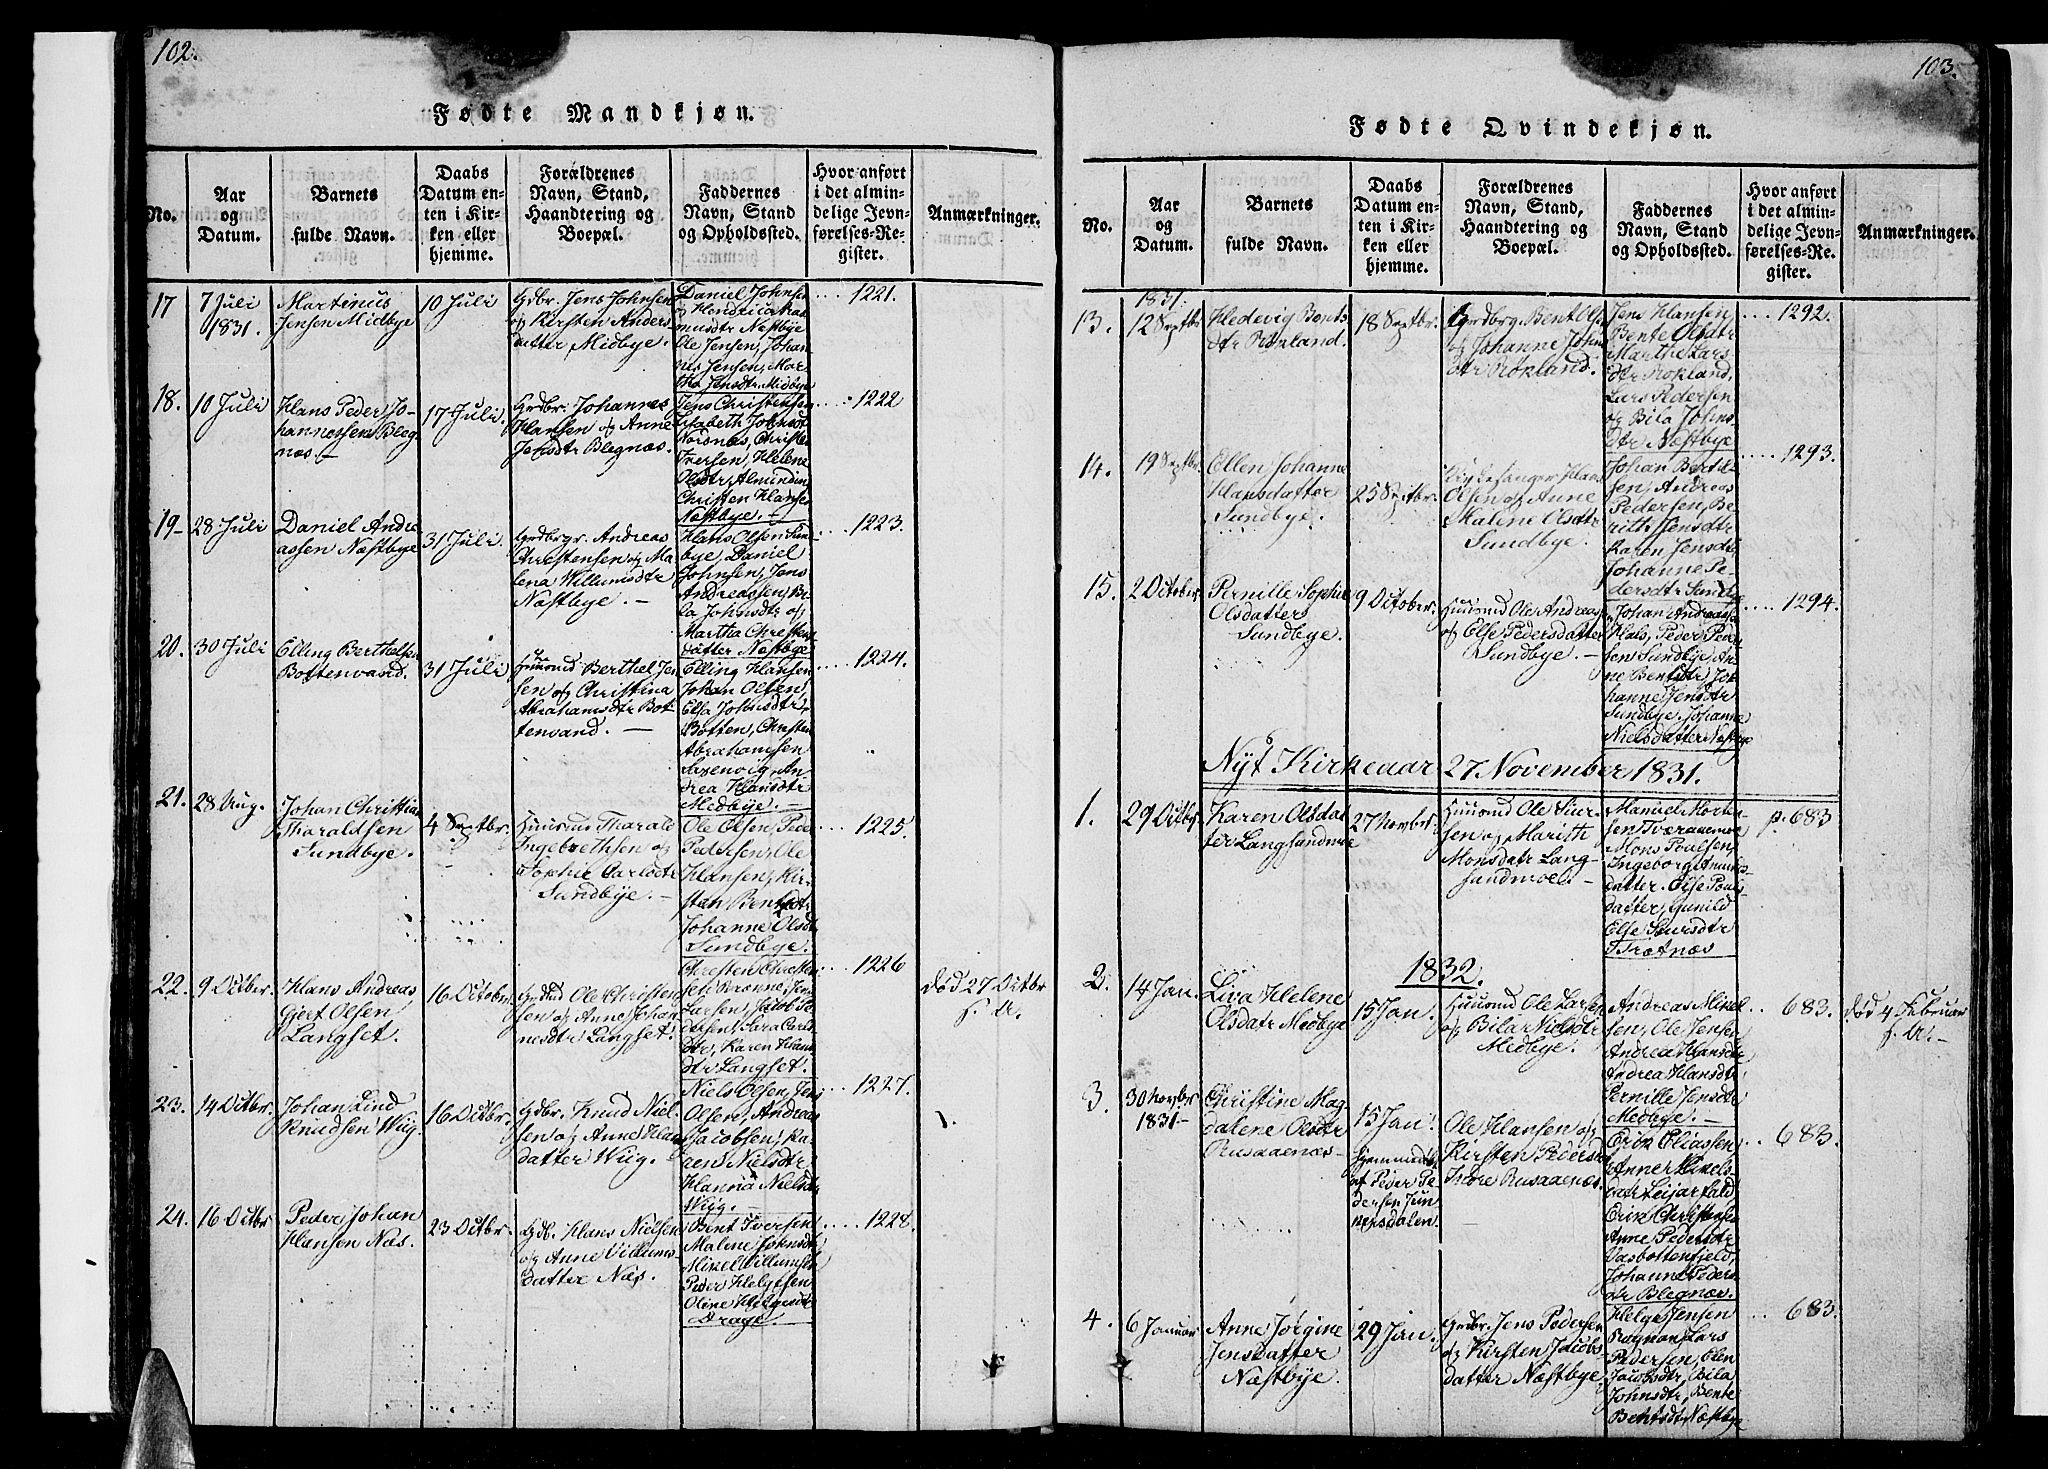 102.
Fødte Mandkjøn.
No.
Aar
og
Datum.
Barnets
fulde Navn.
Daabs
Datum en-
ten i Kir-
ken eller
hjemme.
Forældrenes
Navn, Stand,
Haandtering og
Boepæl.
Faddernes
Navn, Stand
og Opholdssted.
Hvor anført
i det almin-
delige Jevn-
førelses-Re-
gister.
Anmærkninger.
17
7 Juli
1831.
Martinus
Jensen Midbye
10 Juli
Gdbr. Jens Johnsen
og Kirsten Anders
datter Midbye.
Daniel Johnsen
Ole Jensen, Johan-
nes Jensen, Mar
tha Jensdtr Midbye
1221.
18.
10 Juli
Hans Peder Jo-
hannessen Bleg
næs.
17 Juli
Grdbr. Johannes
Hansen og Anne
Jensdtr Blegnæs.
Jens Christensen
Elsabeth Johnsdt
Iversen, Helene
Olsdtr, Almindin
Christen Hansen
Næstbye.
1222
19
28 Juli
Daniel Andre
assen Næstbye
31 Juli.
Grdbrgr. Andreas
Christensen og Ma
lena Willumsdtr
Næstbye.
Hans Olsen Sun
bye, Daniel
Johnsen, Jens
Andreassen, Bi
la Johnsdtr og
Martha Christens
datter Næstbye
1223.
20.
30 Juli
Elling Berthelsen
Bottenvand.
31 Juli
Huusmd Berthel Jen
sen og Christina
Abrahamsdtr Bot
tenvand.
Elling Hansen
Johan Olsen,
Elsa Johnsdtr
Botten, Christen
Abrahamsen
Laxevig, An
drea Hansdtr
Medbye.
1224.
21.
28 Aug.
Johan Christia
Tharaldsen
Sundbye.
4 Septbr.
Huusmd Tharald
Ingebrethsen og
Sophie Carlsdtr
Sundbye.
Ole Olsen, Peder
Pedersen, Ole
Hansen, Kir-
sten Bentsdtr
Johanne Olsdt
Sundbye.
1225.
22.
9 Octbr.
Hans Andreas
Gjert Olsen
Langset.
16 Octobr.
Grdmd Ole Christen
sen og Anne Johan
nesdtr Langset.
Christen Christen
sen Brønne, Jens
Larsen, Jacob Pe
dersen, Sara Carls
dtr, Karen Hans
dtr Langset.
1226
død 27 Octbr
s. A.
23.
14 Octbr.
Johan Lind
Knudsen Wiig.
16 Octbr.
Gdbr. Knud Niel
sen og Anne Hans
datter Wiig.
Niels Olsen, Jens
Olsen, Andreas
Jacobsen, Ka-
ren Nielsdtr
Hanna Nielsdt
Wiig.
1227.
24.
16 Octbr
Peder Johan
Hansen Næs.
23 Octbr.
Gdb. Hans Nielsen
og Anne Villums-
datter Næs.
Bent Iversen
Malene Johnsdt
Mikel Villumsen
Peder Helgesen
Oline Helgesdt
Drage.
1228.
103.
Fødte Qvindekjøn.
No.
Aar
og
Datum.
Barnets
fulde Navn.
Daabs
Datum en-
ten i Kir-
ken eller
hjemme.
Forældrenes
Navn, Stand,
Haandtering og
Boepæl.
Faddernes
Navn, Stand
og Opholdssted.
Hvor anført
i det almin-
delige Jevn-
førelses-Re-
gister.
Anmærkninger.
13.
1831.
12 Septbr
Hedevig Bents
dtr Rokland.
18 Septbr.
Grdbrg Bent Ols
og Johanne John
dtr Rokland.
Jens Hansen
Bente Olsdtr
Marthe Lars-
dtr Rokland.
Lars Pedersen
og Bila Johns
dtr Næstbye
1292.
14.
19 Septbr.
Ellen Johanne
Hansdatter
Sundbye.
25 Septbr.
Kirkesanger Hans
Olsen og Anne
Maline Olsdtr
Sundbye.
Johan Bertel-
sen, Andreas
Pedersen, Be
rith Jensdtr
Karen Jensdt
Johanne Pe-
dersdtr Sundbye
1293.
15.
2 October.
Pernille Sophie
Olsdatter
Sundbye.
9 October.
Huusmd Ole Andreas
og Else Pedersdatter
Sundbye.
Johan Andreas
Hals, Peder Peder
sen Sundbye, An
ne Bentsdtr, Jo
hanne Jensdtr
Sundbye, Johanne
Nielsdatter Næstbye
1294.
Nyt Kirkeaar 27 November 1831.
1.
29 Octbr.
Karen Olsdat
ter Langsandmoe
27 Novbr.
Huusmd Ole Siur
sen og Marith
Monsdatr Lang
sandmoe.
Manuel Morten
sen Tveraaemoe
Mons Poulsen,
Ingeborg Amunds
datter. Else Pouls
datter, Gunild
Else Siursdtr
Trætnæs
p. 683
1832.
2.
14 Jan.
Liva Helene
Olsdatr Medbye
15 Jan.
Huusmd Ole Larsen
og Bila Nielsdtr
Medbye.
Andreas Mikel
sen, Ole Jensen
Andrea Hansdtr
Andrea Hansdt
Pernille Jensdtr
Medbye.
683.
død 4 Februar
s. A.
3.
30 Novbr
1831
Christine Mag
dalene Olsdtr
Rusaaenæs
15 Jan.
hjemmedøbt
af Peder Pe
dersen Jun
kersdalen.
Ole Hansen og
Kirsten Pedersd
Indre Rusaaenæs.
Erik Eliassen
Anne Mikels-
datr
Erik Christensen
Anne Pedersdtr
Vasbottenfield,
Johanne Peders
dtr Blegnæs.
683.
4.
6 Januar
Anne Jørgine
Jensdatter
Næstbye.
29 Jan.
Grdbr. Jens Pedersen
og Kirsten Jacobs
datter Næstbye.
Helge Jensen
Rognan, Lars
Pedersen, Elen
Jacobsdtr, Bila
Johnsdtr, Bente
Bentsdtr Næstbye
683.